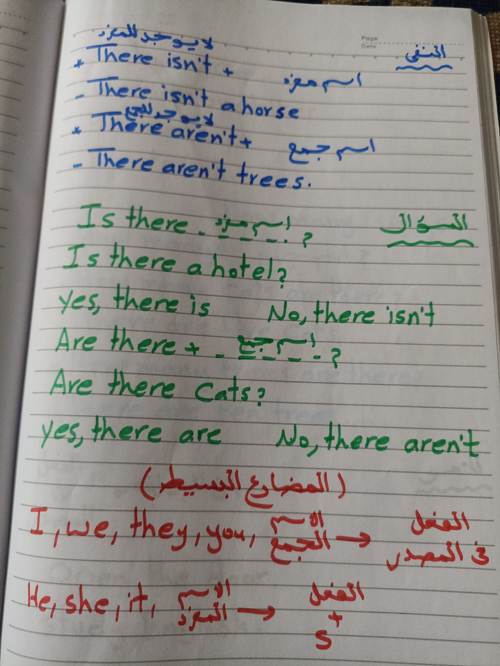 Page
Date
النفى
لا يوجد للمفرد
* There isn't + اسم مفرد
- There isn't a horse
لا يوجد للجمع
* There aren't + اسم جمع
- There aren't trees.
السؤال
Is there - اسم مفرد - - - ?
Is there a hotel?
yes, there is No, there isn't
Are there + - اسم جمع - - - ?
Are there cats?
yes, there are No, there aren't
(المضارع البسيط)
I, we, they, you, الاسم الجمع → الفعل فى المصدر
He, she, it, الاسم المفرد → الفعل + s